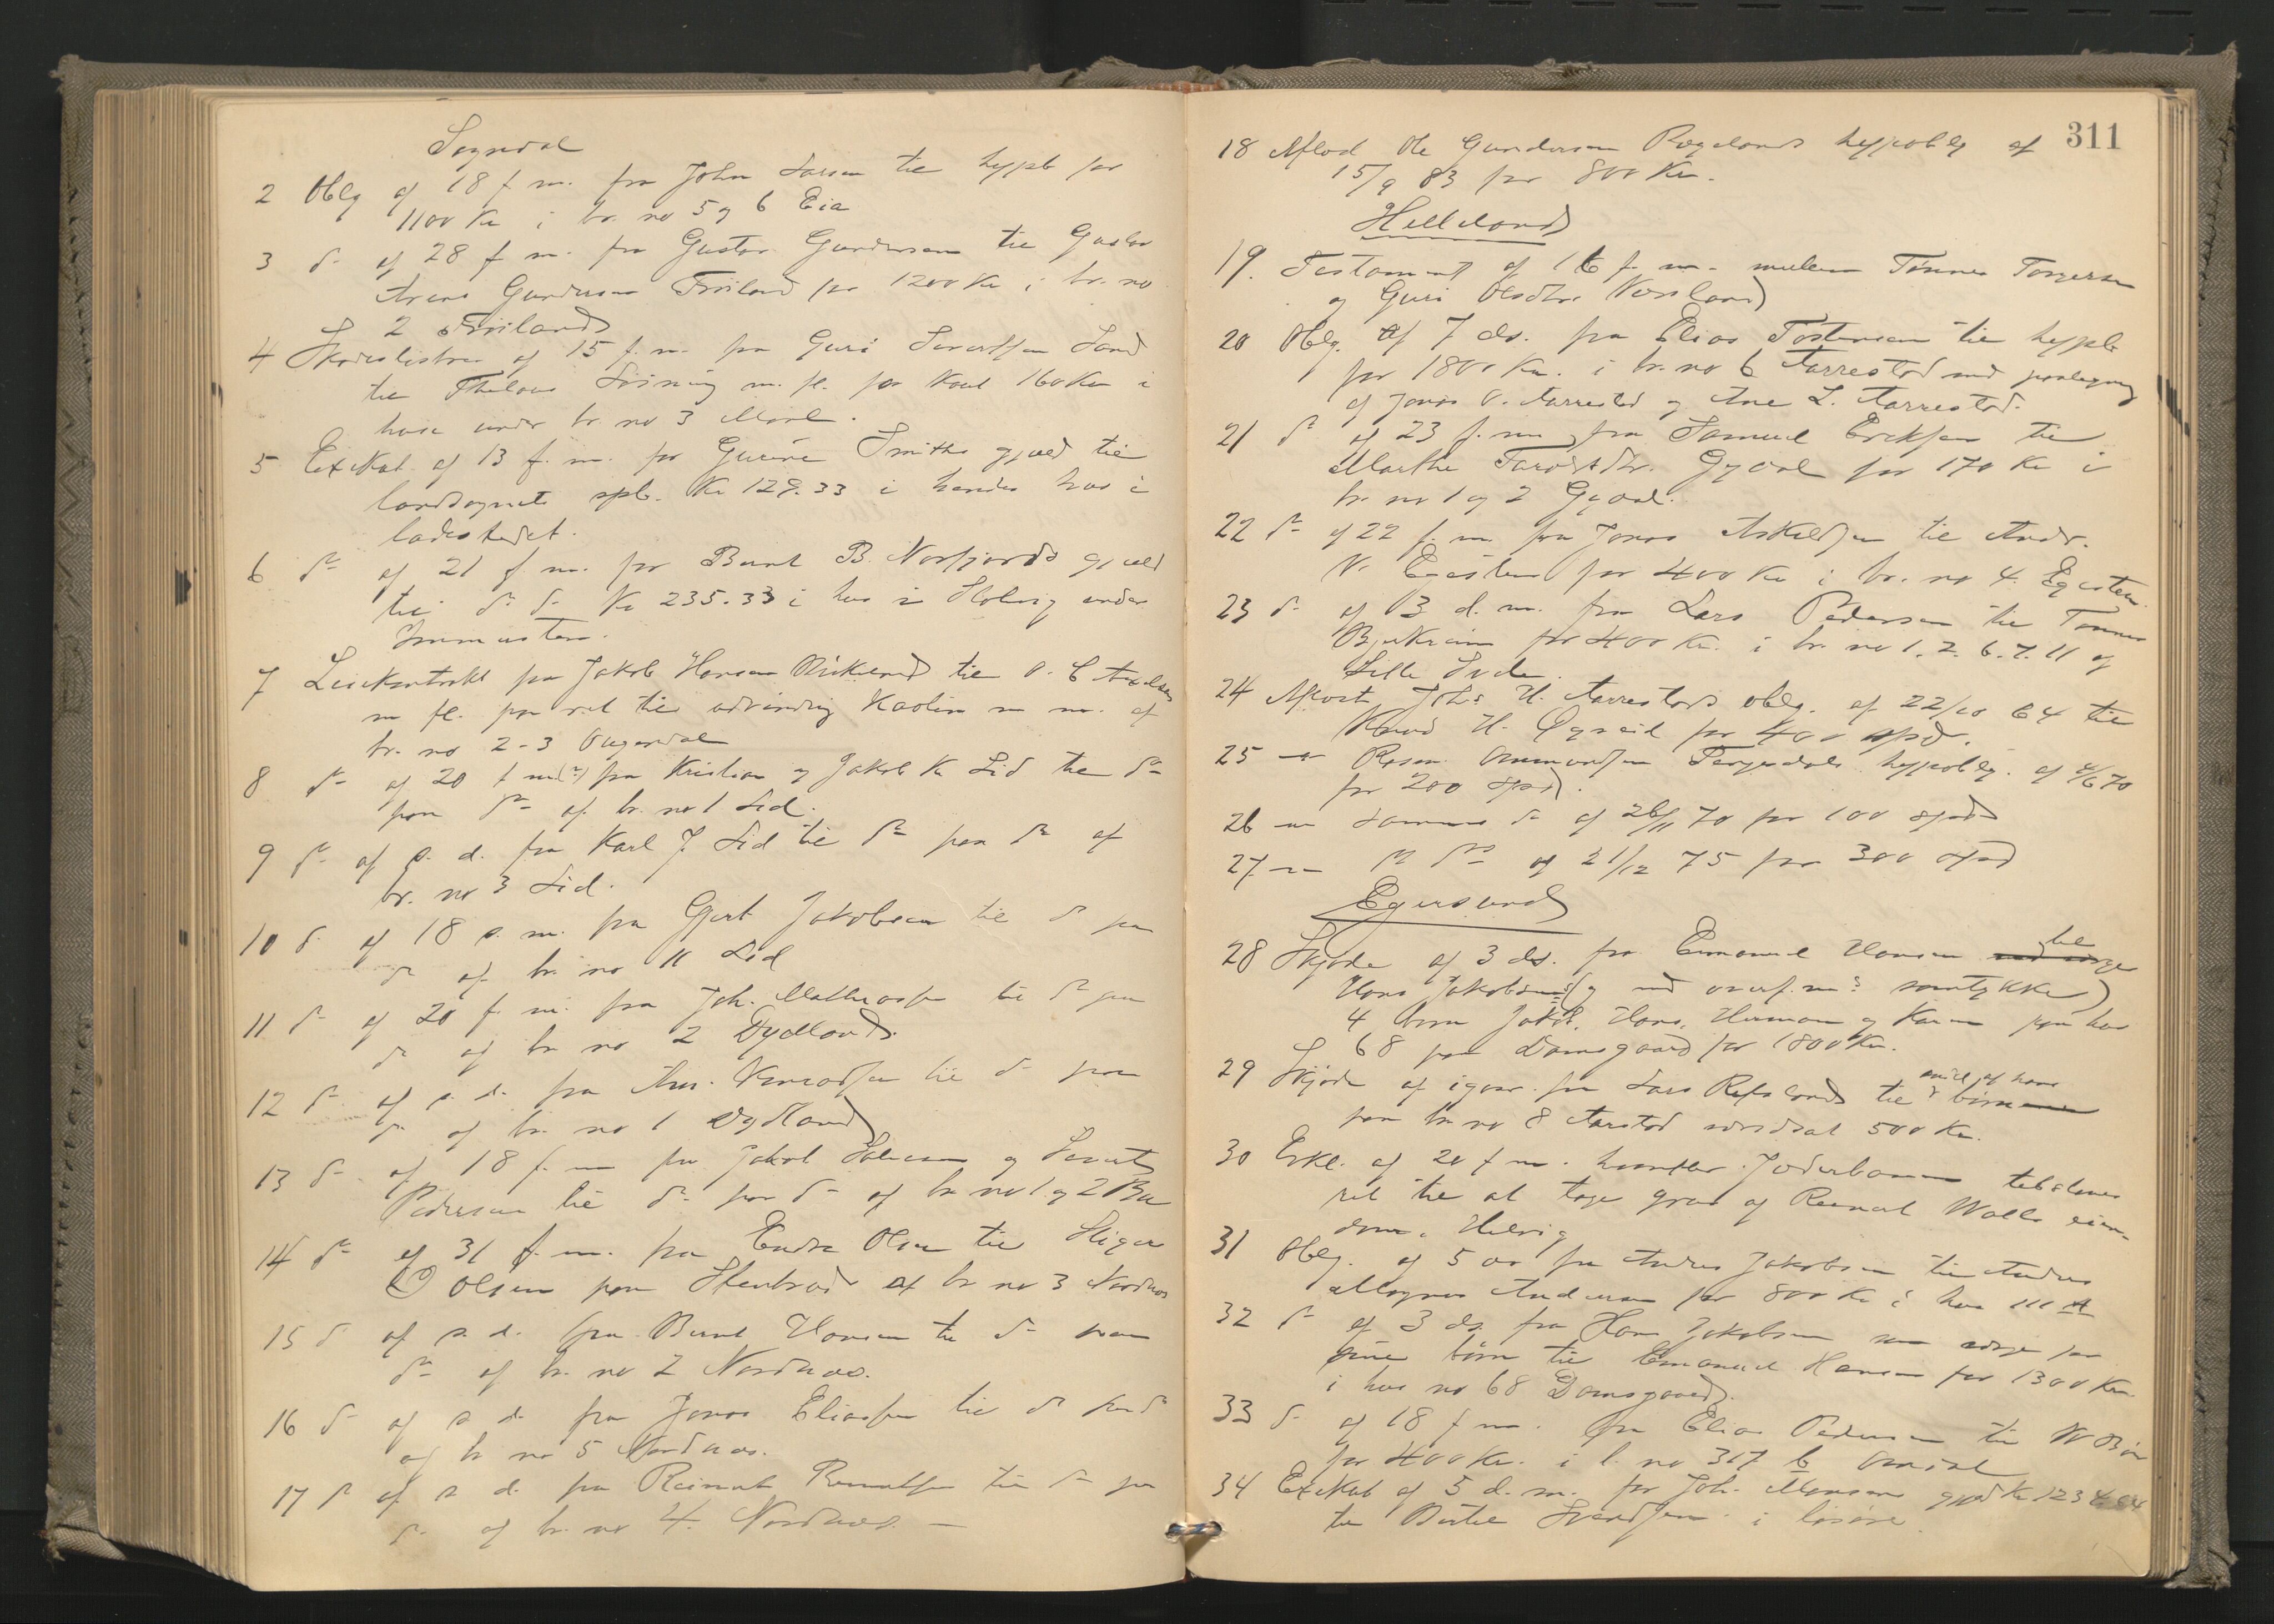 Sogndal
2 Oblg af 18 f. m. fra John Larsen til hypb for
1100 Kr i br. no 5 og 6 Eia
3 do af 28 f. m. fra Gustav Gundersen til Gustav
Arens Gundersen Frøiland for 1200 Kr i br. no
2 Frøiland
4 Skadesløsbrev af 15 f. m. fra Guri Sivertsen Sand
til Theodor Løining m. fl. for Kaut 160 Kr i
huse under br no 3 Moal.
5 Exekut af 13 f. m. for Gurine Smiths gjæld til
landsognets spb. Kr 129.33 i hendes hus i
ladestedet.
6 do af 21 f. m. for Bernt B. Nesfjords gjæld
til do do Kr 235.33 i hus i Stolvig under
Immersten.
7 Leiekontrakt fra Jakob Hansen Birkeland til
m fl. paa ret til udvinding Kaolin m m. af
br. no 2-3 Ougendal
8 do af 20 f m(?) fra Kristian og Jakob K. Lid til do
paa do af br. no 1 Lid.
9 do af s. d. fra Karl J Lid til do paa do af
br. no 3 Lid.
10 do af 18 s. m. fra Gjert Jakobsen til do paa
do af br. no 11 Lid
11 do af 20 f. m. fra Joh. Mathiassen til do paa
do af br no 2 Dydland.
12 do af s. d. fra Ams. til do paa
do af br. no 1 Dydland
13 do af 18 f. m. fra Jakob Salvesen og Sivert
Pedersen til do paa do af br no 1 og 2 Bu
14 do af 31 f. m. fra Endre Olsen til
Olsen paa Stenbrud af br no 3 Nordnes
15 do af s. d. fra Bernt Hansen til do paa
do af br. no 2 Nordnes.
16 do af s d. fra Jonas Eliassen til do paa do
af br no 5 Nordnes.
17 do af s d. fra Reinert Reinertsen til do paa
do af br. no 4. Nordnes. —
311
18 Aflæst Ole Gundersen Rægelands hypoblg af
15/9 83 for 800 Kr.
Helleland
19. Testament af 16 f. m. mellem Tønnes Torgersen
og Guri Olsdtr. Versland
20 Oblg. af 7 ds. fra Elias Tostensen til hypb
for 1800 Kr. i br. no 6 Aarrestad med
af Jonas O. Aarrestad og Ane L. Aarrestad.
21 do af 23 f. m. fra Samuel Eriksen til
Marthe Gyaal for 170 Kr i
br. no 1 og 2 Gyaal.
22 do af 22 f. m. fra Jonas Askildsen til Andr.
N. Egesten for 400 Kr i br. no 4. Egesten.
23 do af 3 d. m. fra Lars Pedersen til Tønnes
Bjerkreim for 400 Kr. i br. no 1. 2. 6. 7. 11 af
Lille
24 Afkort Johs H. Aarrestads oblg. af 22/10 64 til
Knud H. Øgreid for 400 spd.
25 — Rasm. Ommundsen Tengesdals hypoblg. af 4/6 70
for 200 spd.
26 — samme do af 26/11 70 for 100 spd
27 — af 21/12 75 for 300 spd
Egersund
28 Skjøde af 3 ds. fra Emanuel Hansen til
Hans Jakobsens (og med overf.ms samtykke)
4 børn Jakob, Hans, Herman og Karen paa hus
68 paa Damsgaard for 1800 Kr.
29 Skjøde af igaar fra Lars Refsland til
paa br no 8 Aarstad 500 Kr.
30 Erkl. af 20 f m. hvorefter Jæderbanen
ret til at tage grus af Reinert Walls eien-
dom i Helvig
31 Oblg. af 5 ds fra Andreas Jakobsen til Andreas
Magnus Andersen for 800 Kr i hus 111 A
32 do af 3 ds. fra Hans Jakobsen som værge for
sine børn til Emanuel Hansen for 1300 Kr
i hus no 68 Damsgaard.
33 do af 18 f m. fra Elias Pedersen til
for 400 Kr. i l. no 317 b
34 Exekut af 5 d. m. for Joh. Monsens gjæld Kr
til Bertel Svendsen i løsøre.